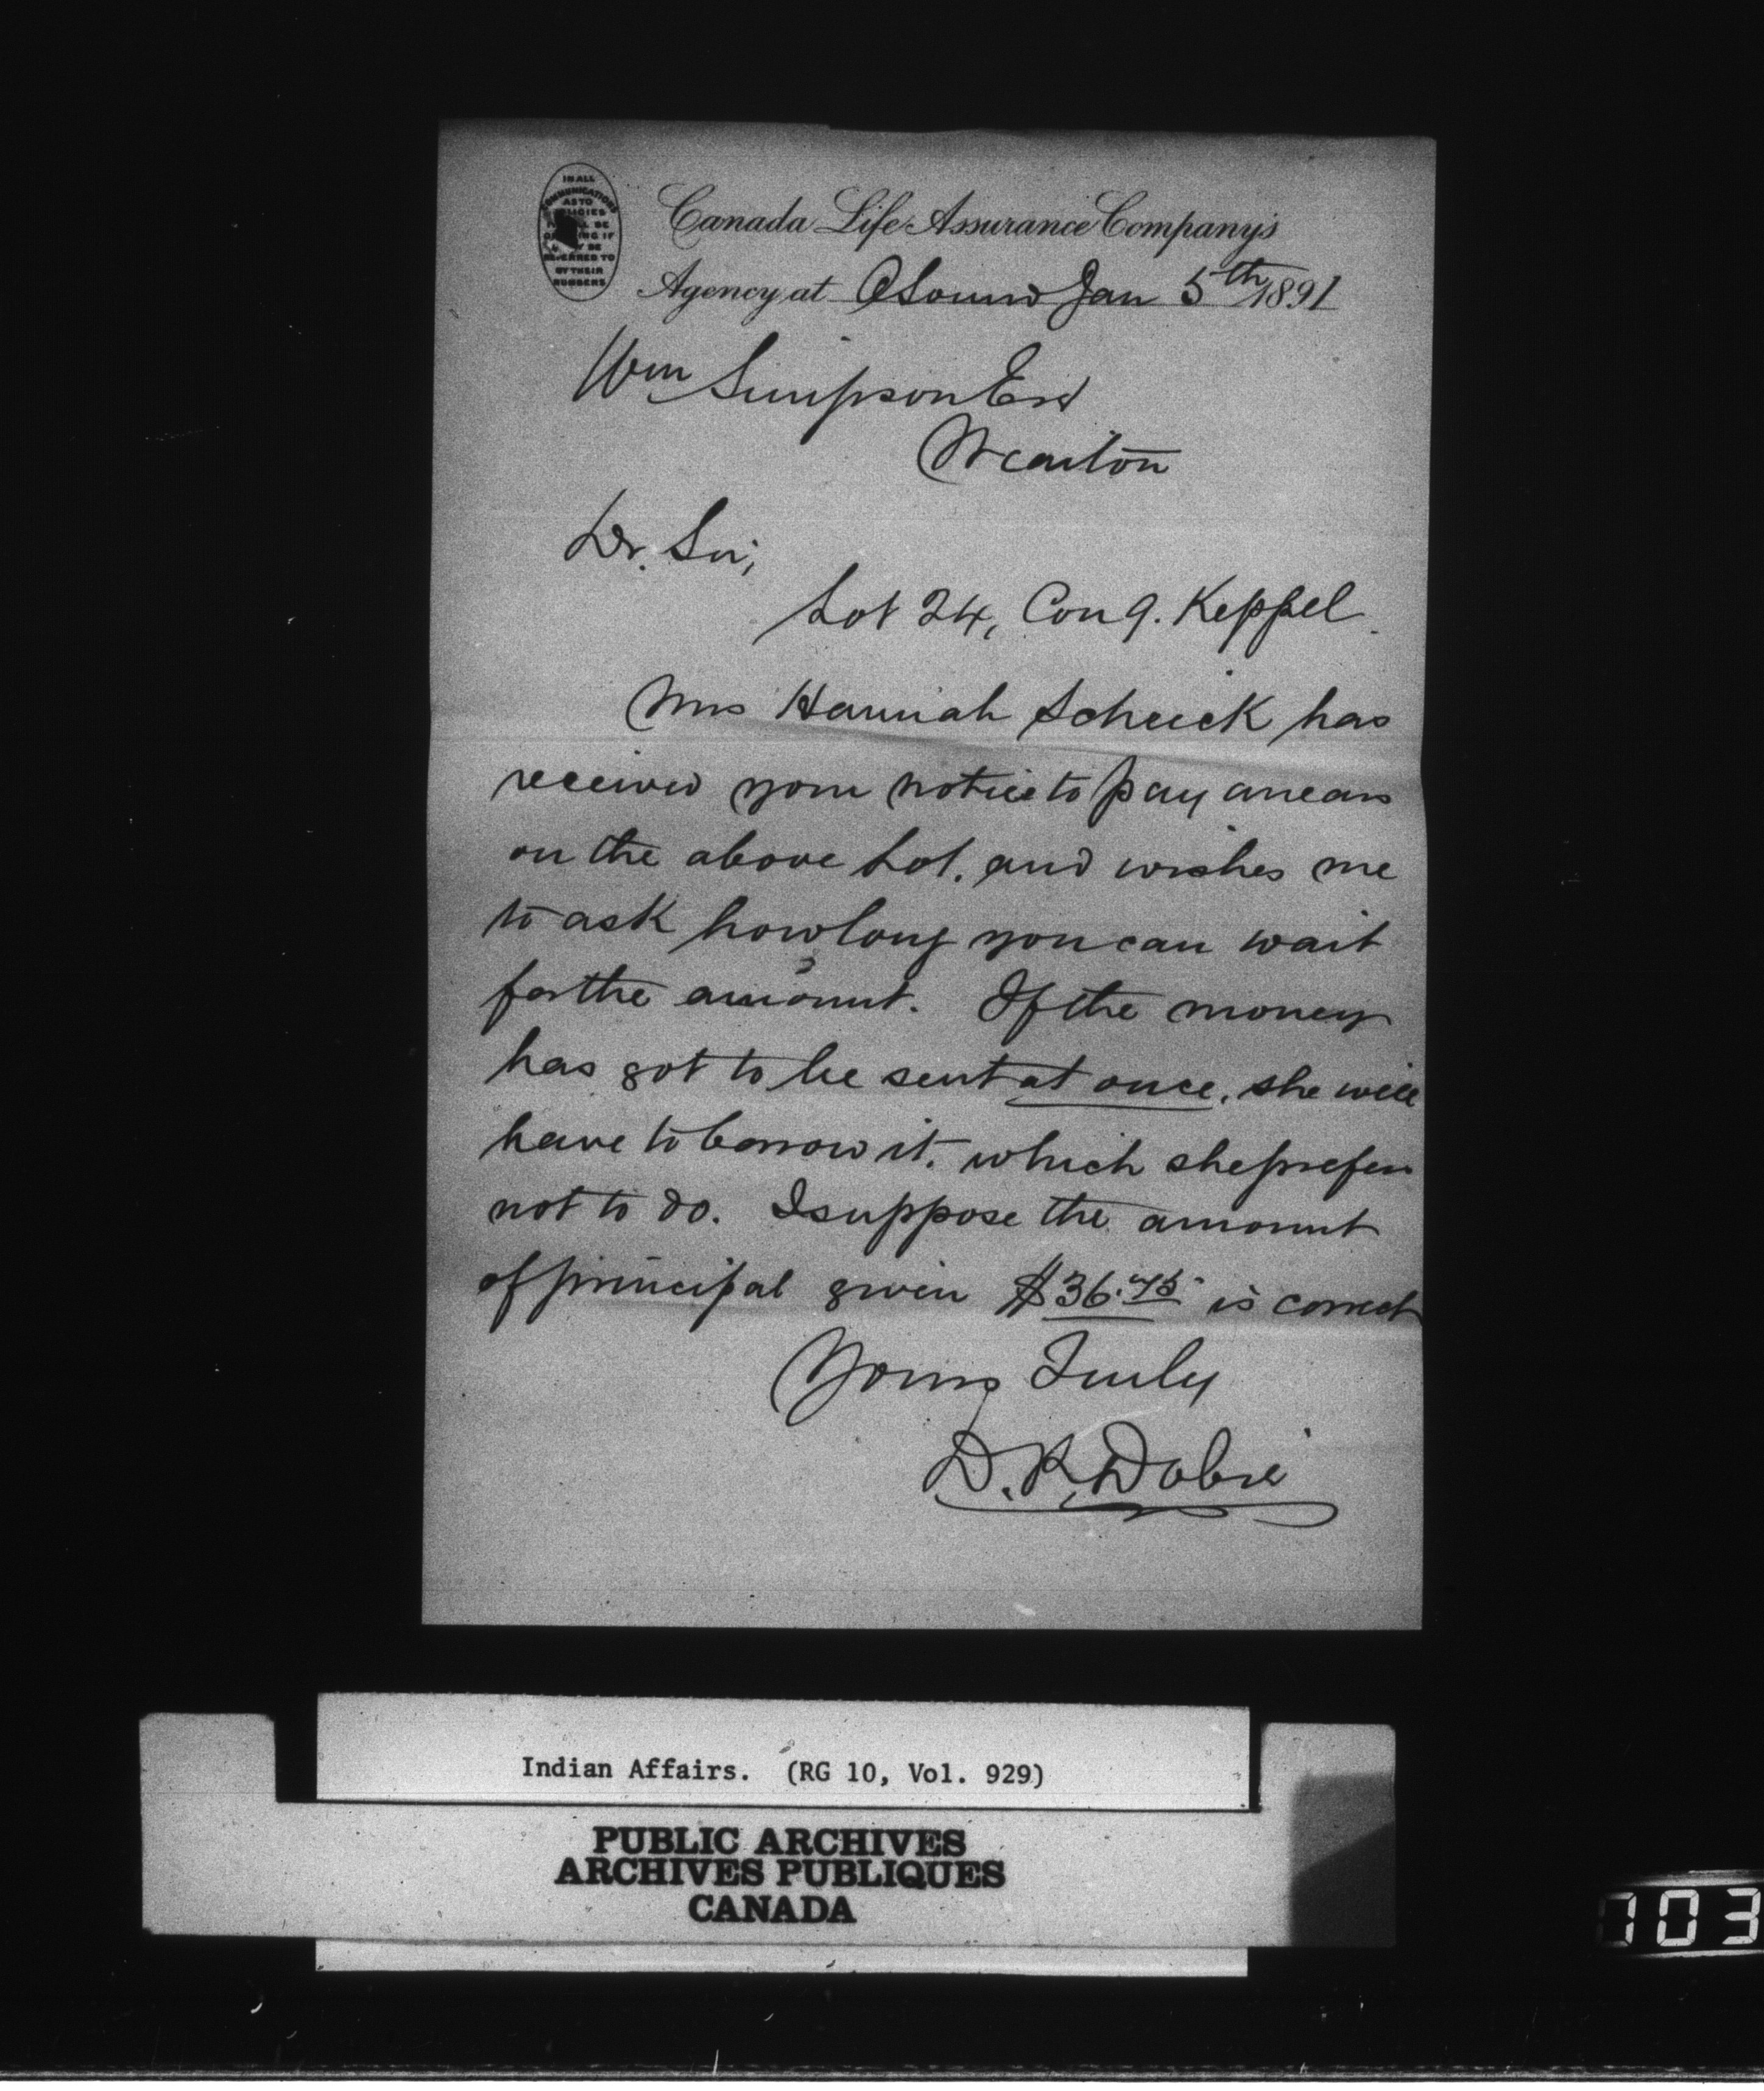 IN ALL
COMMUNICATIONS
AS TO
POLICIES
BE
IF
BE
REFERRED TO
BY THEIR
NUMBERS
Canada Life Assurance Company's
Agency at O Sound Jan 5th 1891
Wm Simpson Esq
Wiarton
Dr. Sir,
Lot 24, Con 9. Keppel.
Mrs Hannah Scheick has
received your notice to pay arrears
on the above Lot, and wishes me
to ask how long you can wait
for the amount. If the money
has got to be sent at once, she will
have to borrow it, which she prefers
not to do. I suppose the amount
of principal given $36.75 is correct
Yours Truly
D. R. Dobie
Indian Affairs. (RG 10, Vol. 929)
PUBLIC ARCHIVES
ARCHIVES PUBLIQUES
CANADA
103